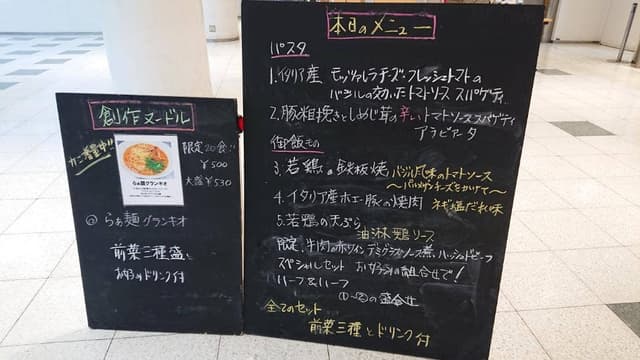 創作ヌードル
限定20食!!
¥500
大盛¥530
らぁ麺グランキオ
@ らぁ麺グランキオ
前菜三種盛と
お好みドリンク付
本日のメニュー
パスタ
1.イタリア産 モッツァレラチーズ・フレッシュトマトの
バジルの効いたトマトソース スパゲティ
2.豚粗挽きとしめじ茸の辛いトマトソーススパゲティ
アラビアータ
御飯もの
3.若鶏の鉄板焼 バジル風味のトマトソース
～パルメザンチーズをかけて～
4.イタリア産ホエー豚の焼肉 ネギ塩だれ味
5.若鶏の天ぷら
油淋鶏ソース
限定.牛肉の赤ワインデミグラスソース煮、ハッシュドビーフ
スペシャルセット お好きな組合せで!
ハーフ&ハーフ
の盛合せ
全てのセット
前菜三種とドリンク付